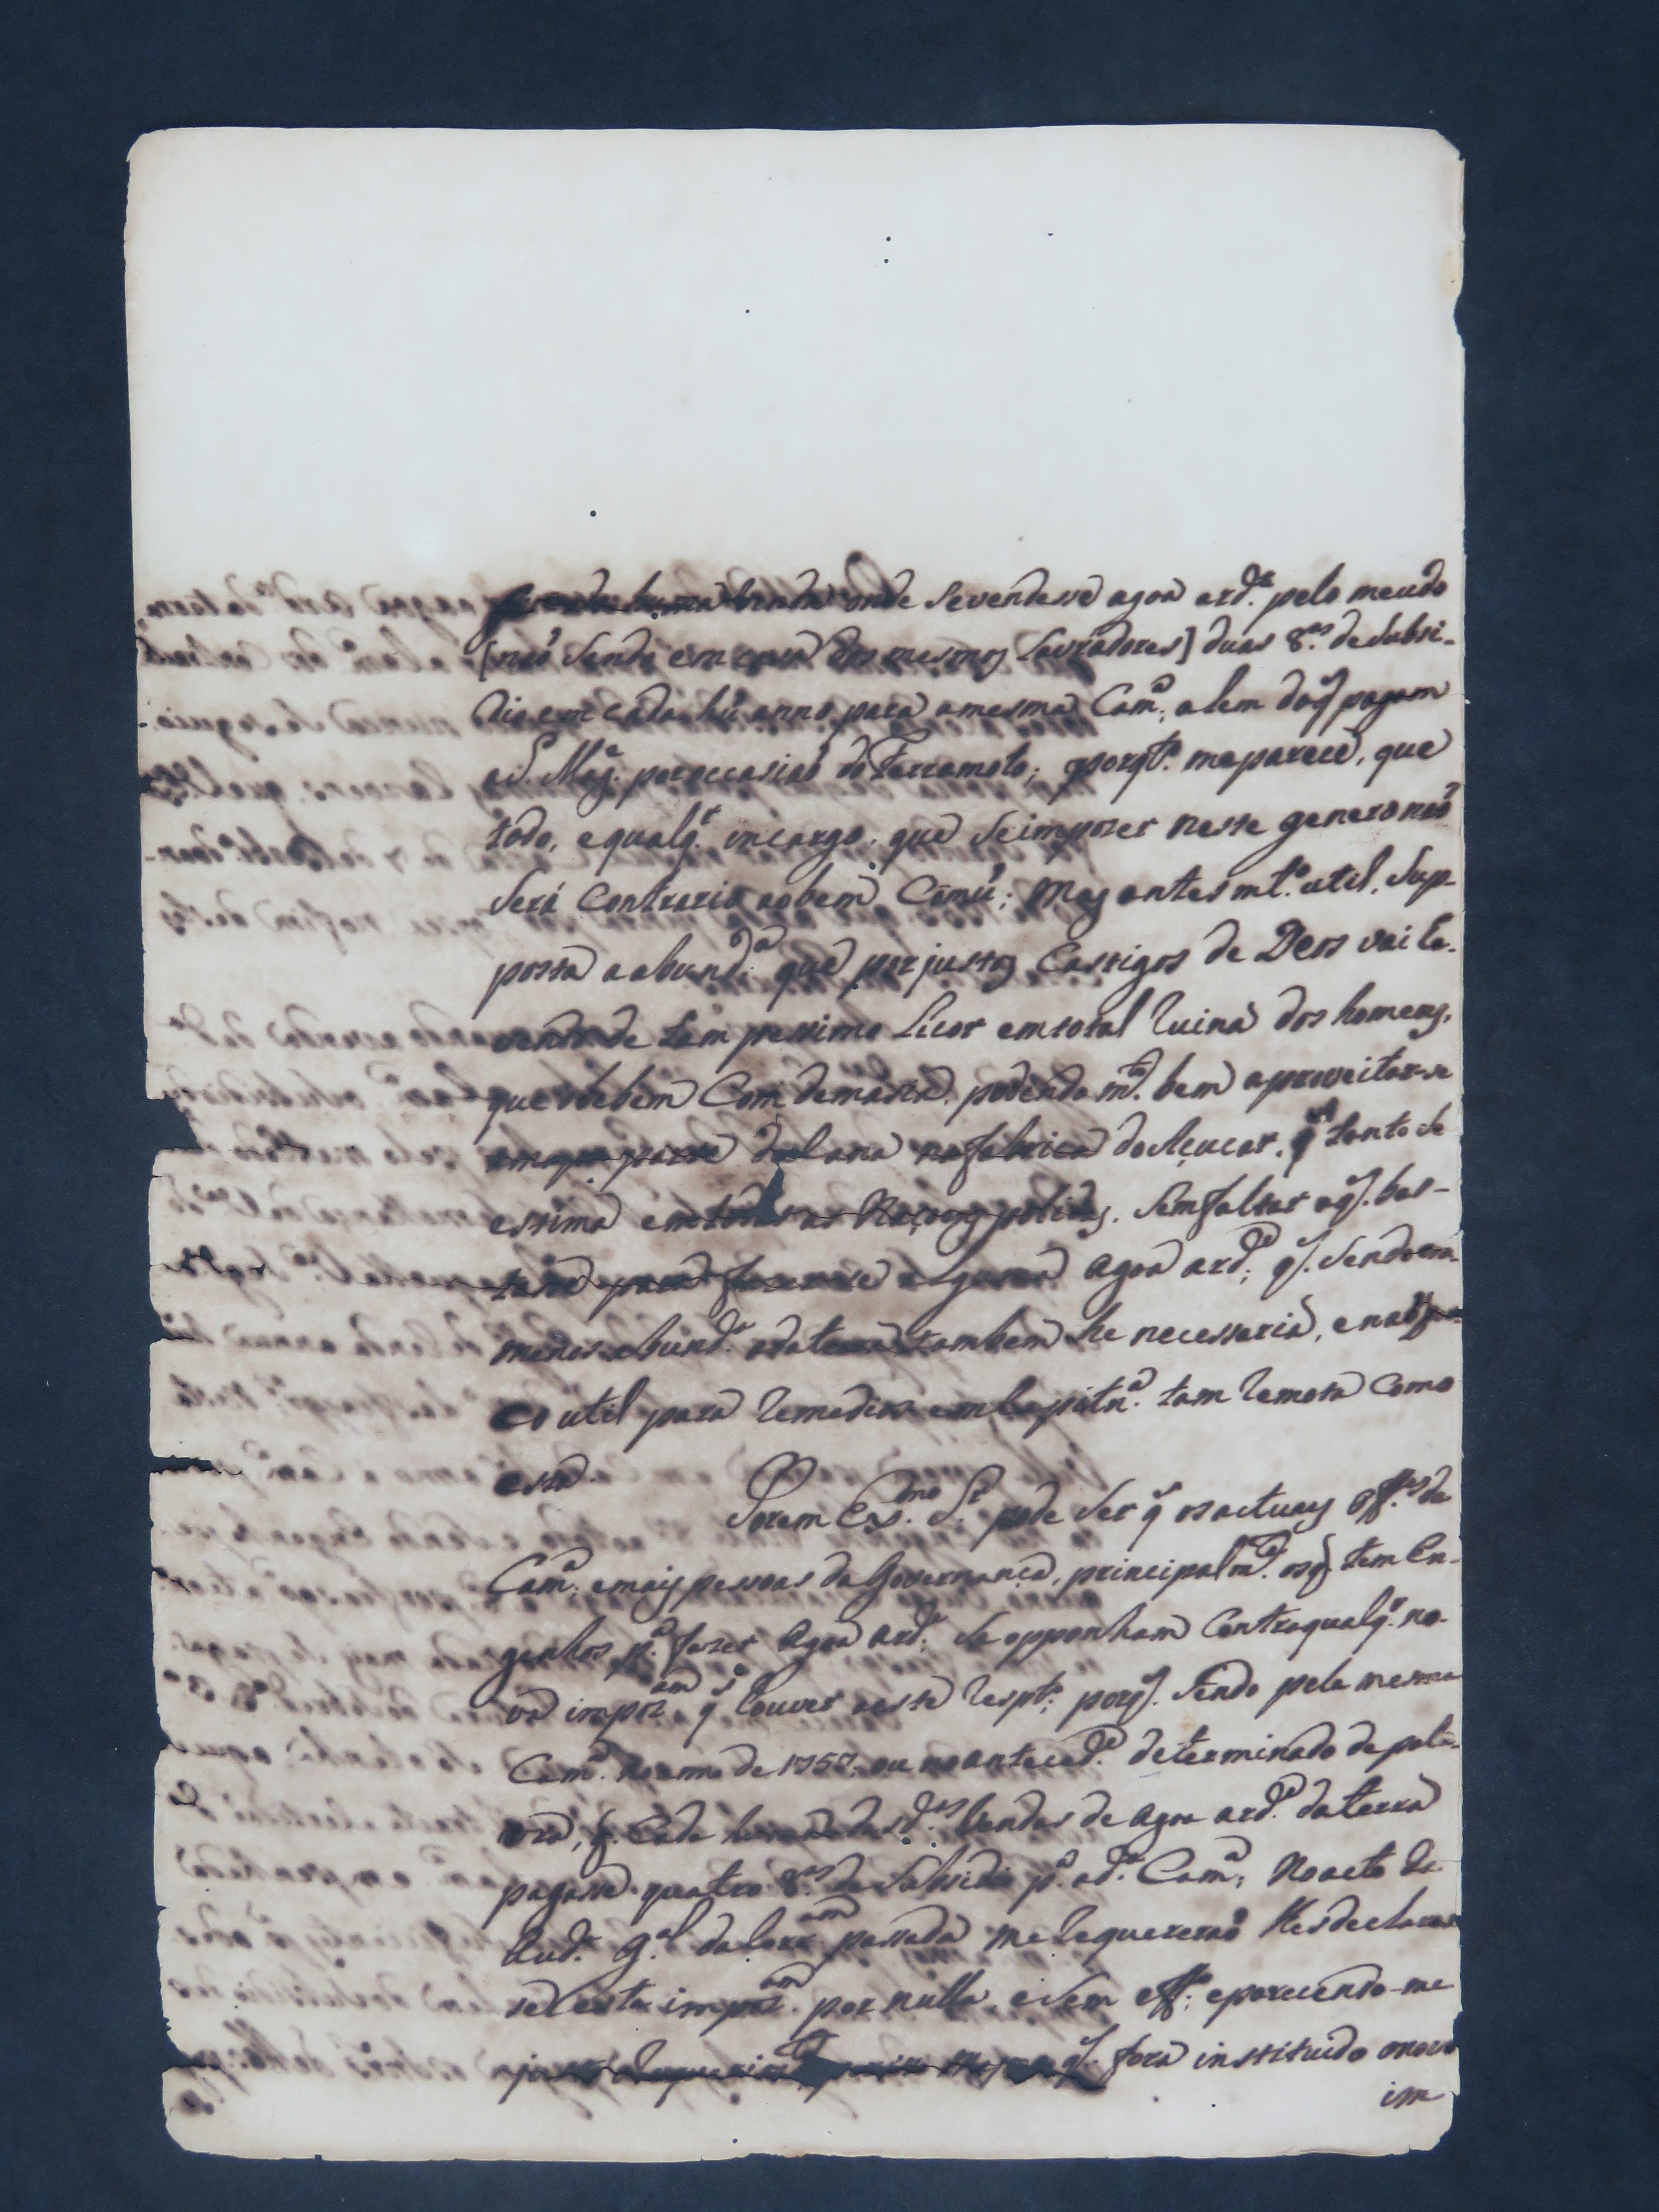 huma venda onde se vendesse agoa ard.te pelo meudo
[naõ sendo em casa dos mesmos Lavradores] duas 8.as de subsi-
dio em cada hũ anno para a mesma Cam.a, alem do q̃ pagam
a S. Mag.e por occasiaõ do Terramoto; porq̃t.o me parece, que
todo, e qualq.r incargo, que se impozer neste genero naõ
será contrario ao bem Comũ; mas antes m.to util, sup-
posta a abund.ca que por justos Castigos de Deos vai ha-
vendo de tam pessimo Licor em total ruina dos homens,
que o bebem Com demasia, podendo m.to bem aproveitar-se
a mayor parte da Cana na fabrica do Açucar, q̃ tanto se
estima em todas as Naçoens polidas, sem faltar a q̃ bas-
tasse para fazer-se alguma Agoa ard.e, q̃ sendo em
menos abund.ca a da terra tambem he necessaria, e naõ pou-
co util para remedios em Capitn.a tam remota como
esta.
Porem Ex.mo S.r pode ser q̃ os actuaes off.es da
Cam.a e mais pessoas da Governança, principalm.te os q̃ tem En-
genhos p.a fazer Agoa ard.e, se opponham Contra qualq.r no-
va impoz.am q̃ houver neste resp.to; porq̃ sendo pela mesma
Cam.a no anno de 1757, ou no anteced.e determinado de pala-
vra, q̃ Cada huma das d.as Vendas de Agoa ard.e da terra
pagasse quatro 8.as de Subsidio p.a a d.a Cam.a, no acto da
Aud.a g.al da Corr.am passada me requereraõ lhes declaras-
se esta impoz.am por nulla, e sem eff.o; e parecendo-me
justo o requerim.to q̃ fora instituido o novo
im